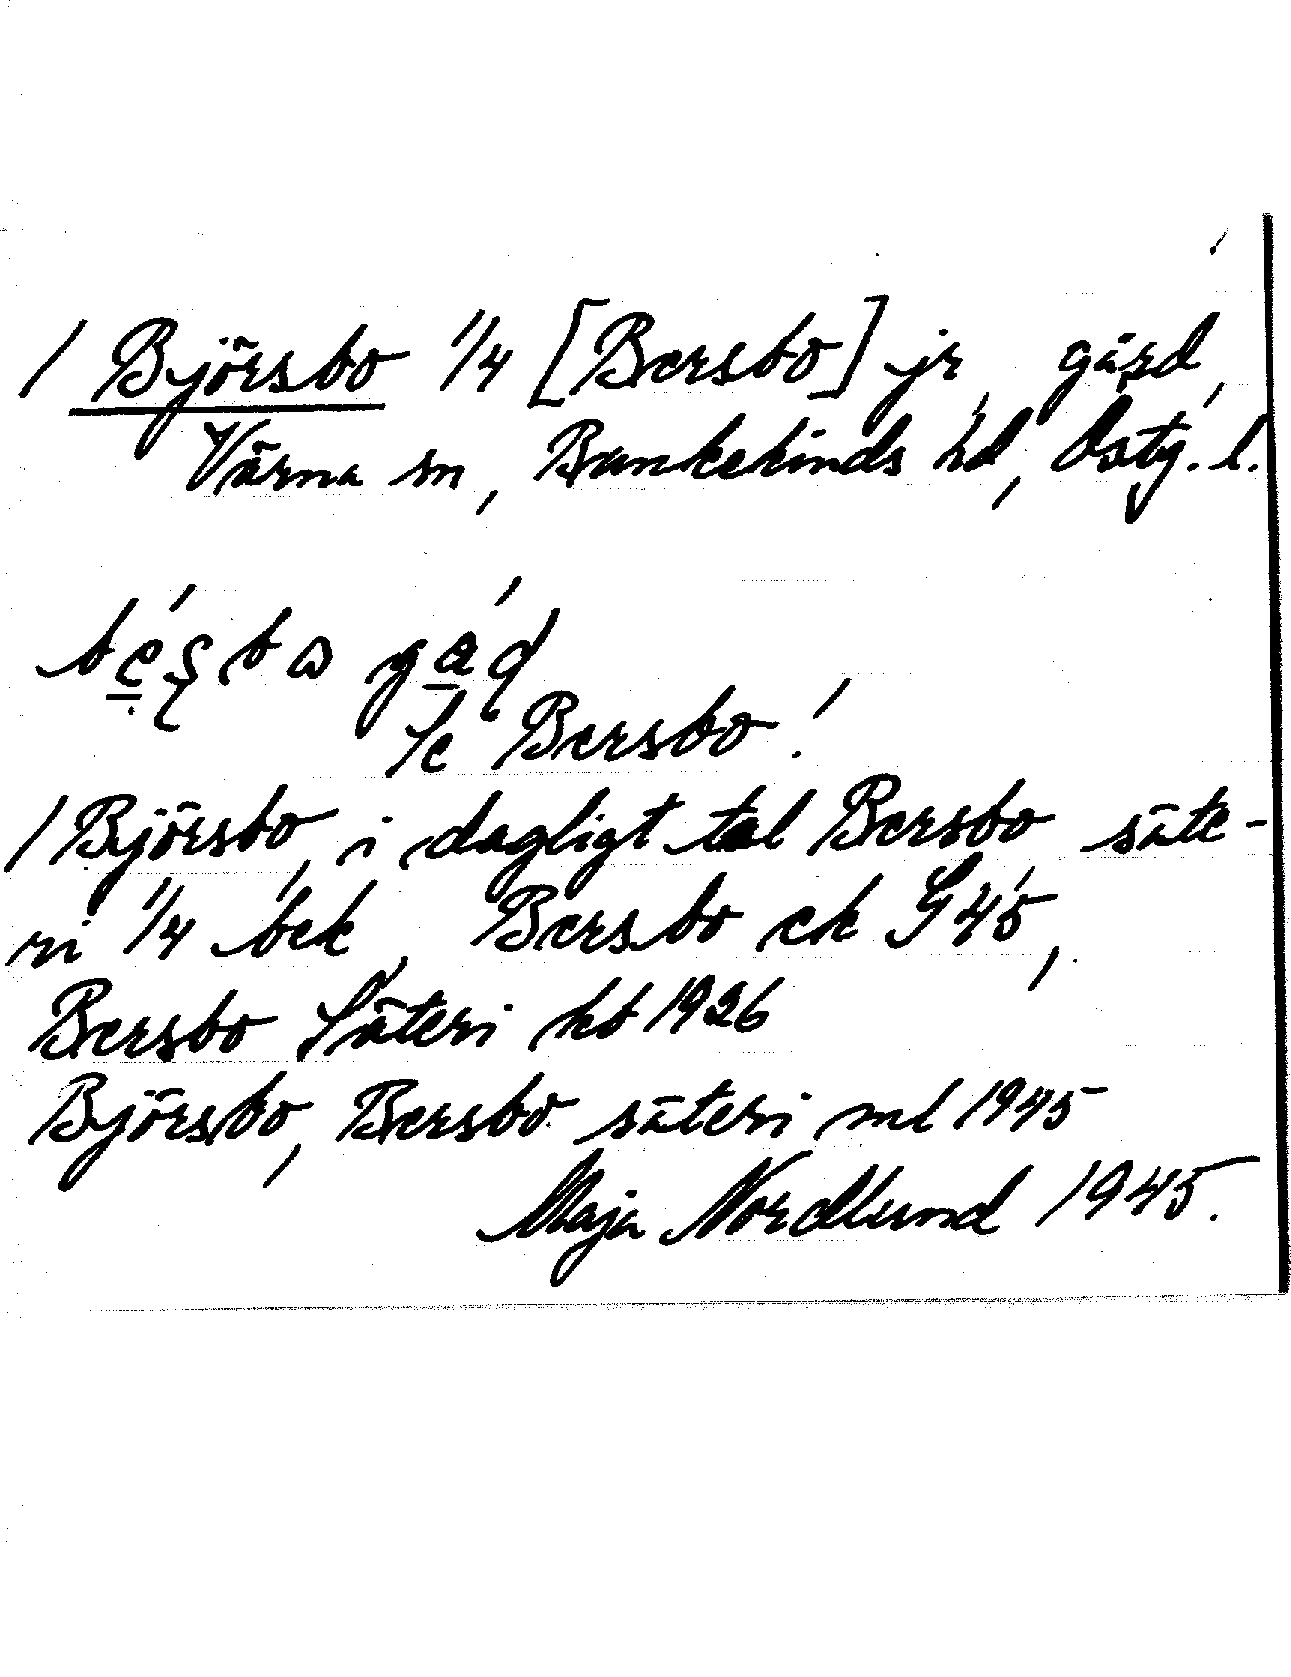 1 Björsbo 1/4 [Bersbo] jr, gård,
Värna sn, Bankekinds hd, Östg. l.
Se Bersbo!
1 Björsbo, i dagligt tal Bersbo, säte-
ri 1/4 bek, Bersbo ek G 45,
Bersbo Säteri kb 1926
Björsbo, Bersbo säteri ml 1945
Maja Nordlund 1945.